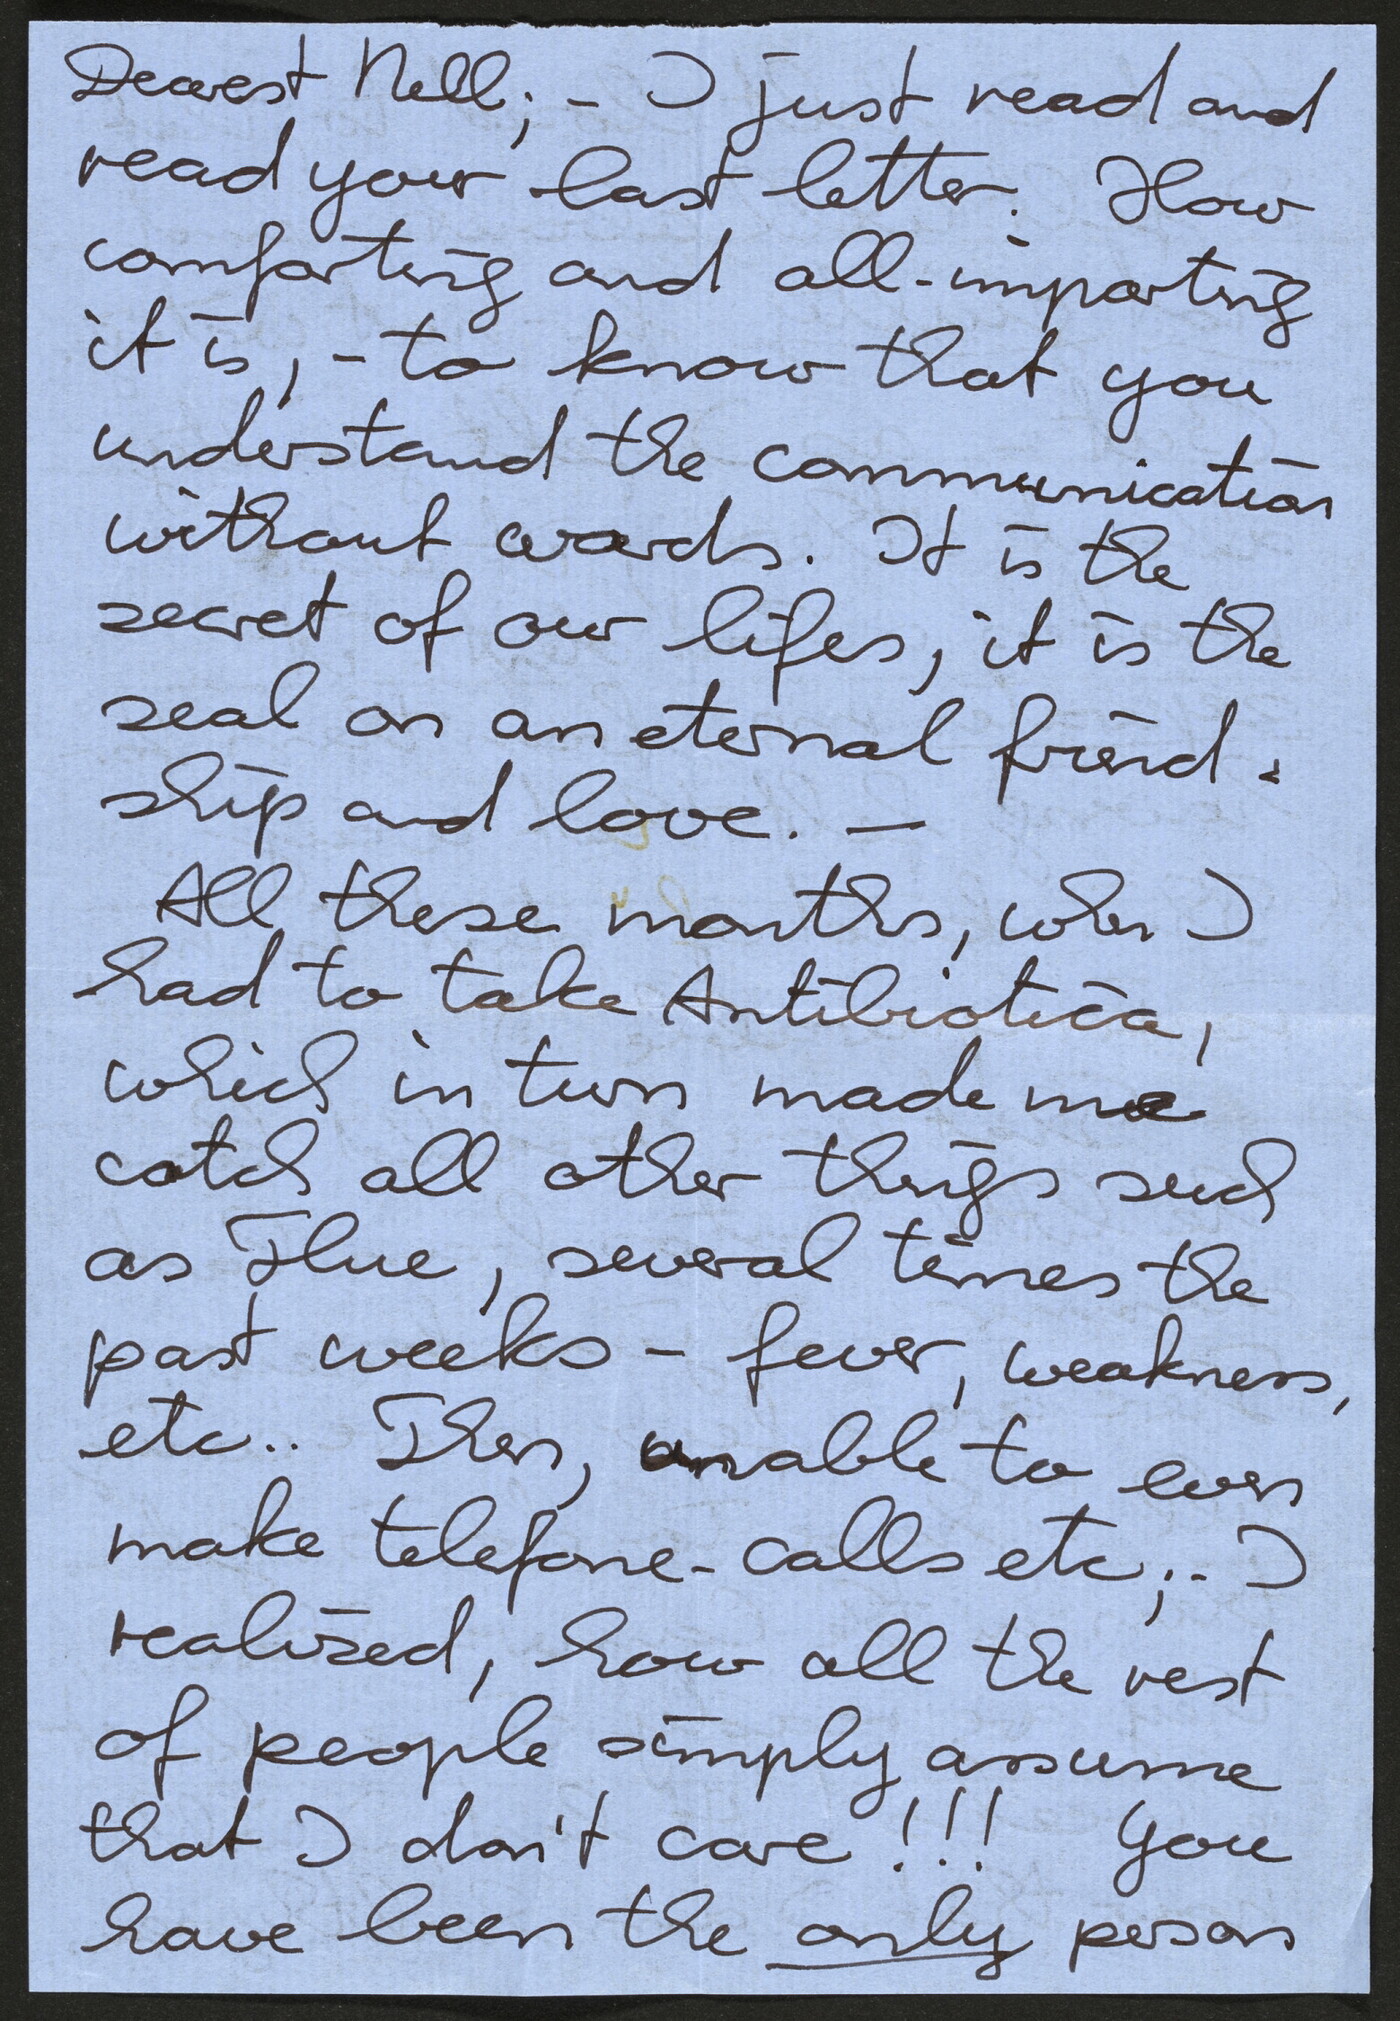 Dearest Nell; - I just read and
read your last letter. How
comforting and all-importing
it is, - to know that you
understand the communication
without words. It is the
secret of our lifes, it is the
seal on an eternal friend-
ship and love. -
All these months, when I
had to take Antibiotica,
which in turn made me
catch all other things such
as Flue, several times the
past weeks - fever, weakness,
etc.. Then, unable to even
make telefone-calls etc;.. I
realized, how all the rest
of people simply assume
that I don't care!!! You
have been the only person